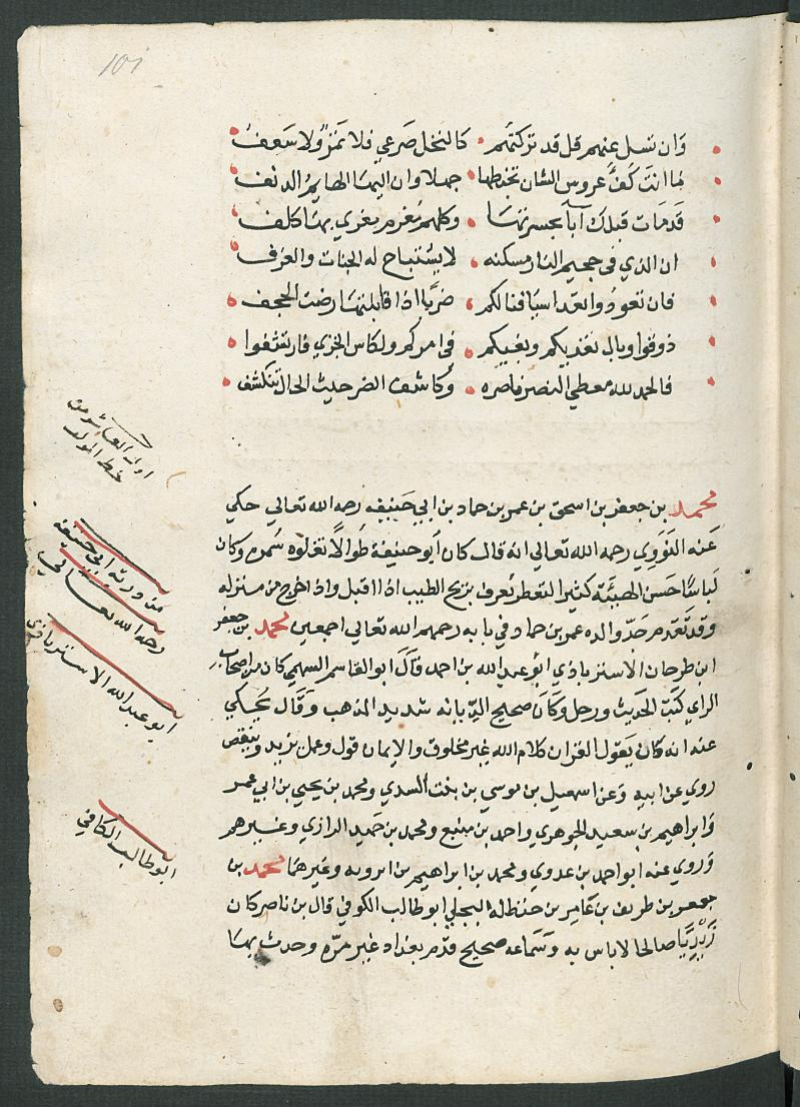 101
وان تسل عنهم قل قد تركتهم • كالنخل صرعي فلا تمز ولا سعف
ما انت كفؤ عروس الشان تخطبها • جهلا وان اليها الهايم الدنف
قد مات قبلك آبا بحسرتها • وكلهم مغرم مغري بها كلف
ان الذي في جحيم النار مسكنه • لا يستباح له الجنات والغرف
فان تعودوا نعد اسيافنا لكم • ضربا اذا قابلتها رضت الحجف
ذوقوا وبال تعديكم وبغيكم • في امركم ولكاس الخزي فارتشفوا
فالحمد لله معطي النصر ناصره • وكاشف الضر حيث الحال تنكشف
اول العاشر من
خط المولف
محمد بن جعفر بن اسحق بن عمر بن حماد بن ابي حنيفه رحمه الله تعالي حكي
عنه النووي رحمه الله تعالي انه قال كان ابو حنيفة طوالا تعلوه سمره وكان
لباسا حسن الهيئة كثير التعطر يعرف بريح الطيب اذا اقبل واذا خرج من منزله
وقد تقدم جد والده عمر بن حماد في بابه رحمهم الله تعالي اجمعين محمد بن جعفر
ابن طرحان الاستراباذي ابو عبد الله بن احمد قال ابو القاسم السهمي كان من اصحاب
الراي كتب الحديث ورحل وكان صحيح الديانه شديد المذهب وقال يحكي
عنه انه كان يقول القران كلام الله غير مخلوق والايمان قول وعمل يزيد وينقص
روي عن ابيه وعن اسمعيل بن موسي بن بنت السدي ومحمد بن يحيي بن ابي عمر
وابراهيم بن سعيد الجوهري واحمد بن منيع ومحمد بن حميد الرازي وغيرهم
وروي عنه ابو احمد بن عدوي ومحمد بن ابراهيم بن ابرويه وغيرهما محمد بن
جعفر بن طريف بن عامر بن حنطله البجلي ابو طالب الكوفي قال بن ناصر كان
زيديا صالحا لا باس به وسماعه صحيح قدم بغداد غير مره وحدث بها
من ورثة ابي حنيفة
رحمه الله تعالي
ابو عبد الله الاستراباذي
ابو طالب الكافي